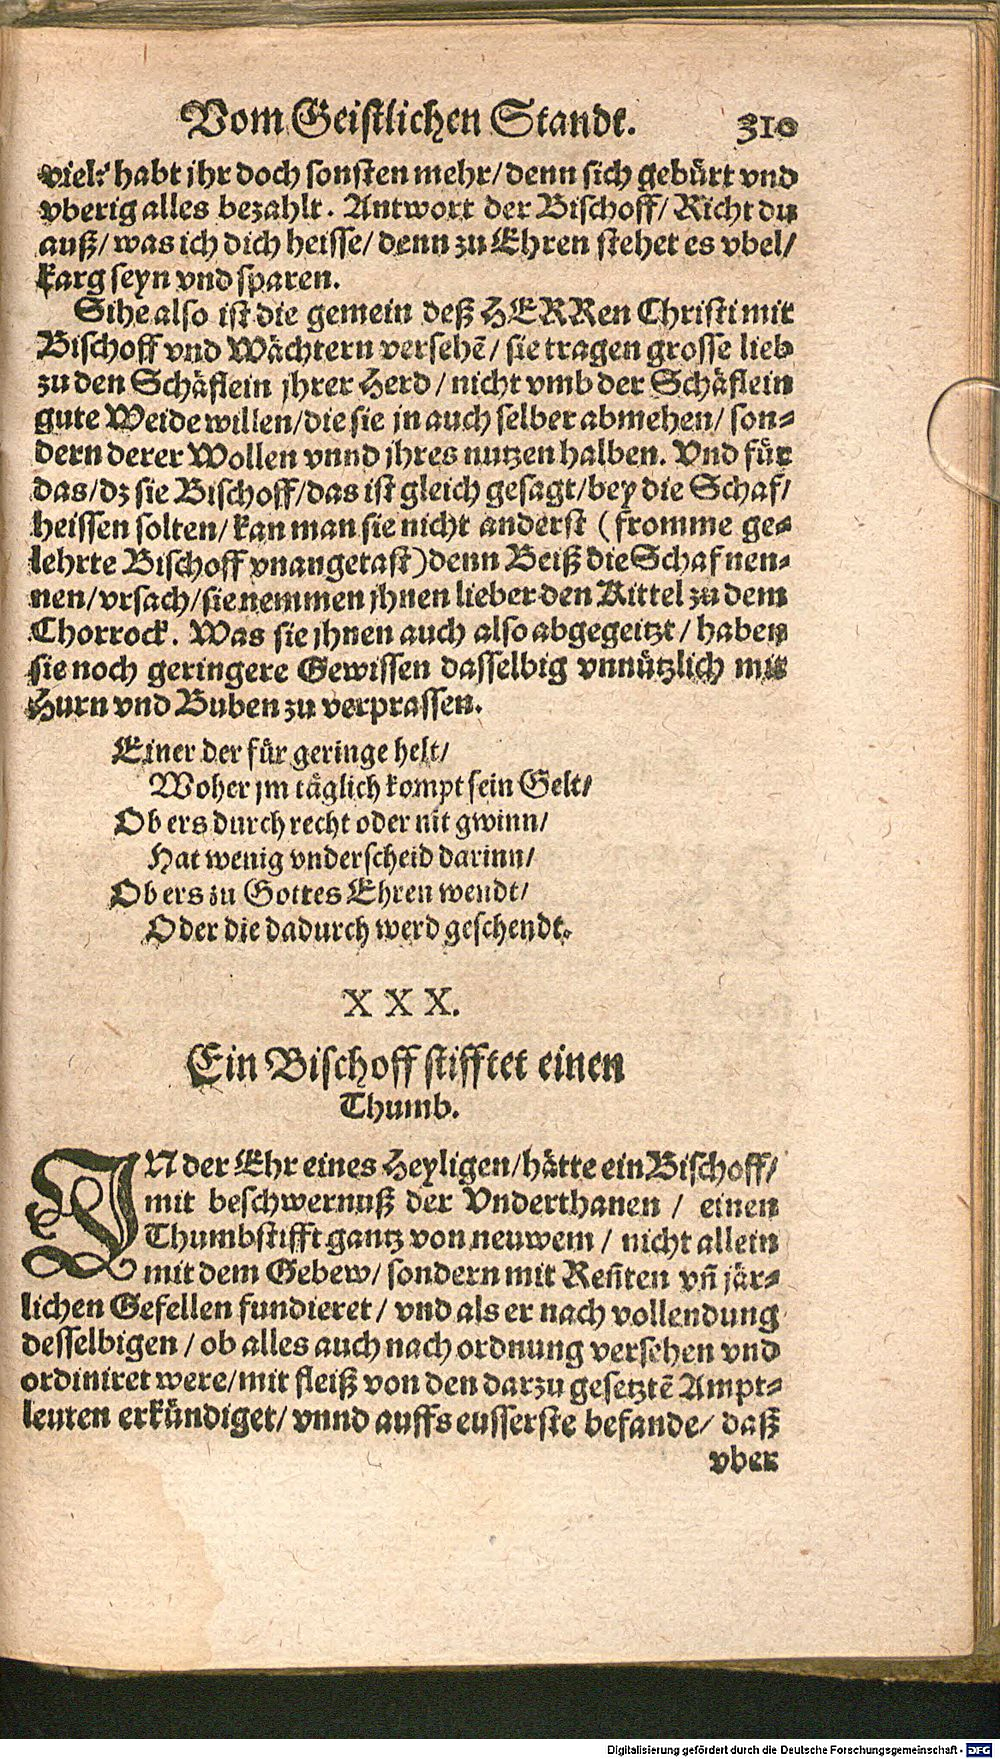 Vom Geistlichen Stande. 310
viel? habt jhr doch sonsten mehr/denn sich gebürt vnd
vberig alles bezahlt. Antwort der Bischoff/ Richt du
auß/was ich dich heisse/ denn zu Ehren stehet es vbel/
karg seyn vnd sparen.
Sihe also ist die gemein deß HERRen Christi mit
Bischoff vnd Wächtern versehē/ sie tragen grosse lieb
zu den Schäflein jhrer Herd/ nicht vmb der Schäflein
gute Weide willen/die sie jn auch selber abmehen/ son-
dern derer Wollen vnnd jhres nutzen halben. Vnd für
das/dz sie Bischoff/das ist gleich gesagt/bey die Schaf/
heissen solten/kan man sie nicht anderst (fromme ge-
lehrte Bischoff vnangetast) denn Beiß die Schaf nen-
nen/vrsach/sie nemmen jhnen lieber den Kittel zu dem
Chorrock. Was sie jhnen auch also abgegeitzt/ haben
sie noch geringere Gewissen dasselbig vnnützlich mit
Hurn vnd Buben zu verprassen.
Einer der für geringe helt/
Woher jm täglich kompt sein Gelt/
Ob ers durch recht oder nit gwinn/
Hat wenig vnderscheid darinn/
Ob ers zu Gottes Ehren wendt/
Oder die dadurch werd geschendt.
XXX.
Ein Bischoff stifftet einen
Thumb.
IN der Ehr eines Heyligen/hätte ein Bischoff/
mit beschwernuß der Vnderthanen/ einen
Thumbstifft gantz von neuwem/ nicht allein
mit dem Gebew/ sondern mit Reñten vñ jär-
lichen Gefellen fundieret/ vnd als er nach vollendung
desselbigen/ ob alles auch nach ordnung versehen vnd
ordiniret were/mit fleiß von den darzu gesetztē Ampt-
leuten erkündiget/ vnnd auffs eusserste befande/ daß
vber
Digitalisierung gefördert durch die Deutsche Forschungsgemeinschaft - DFG